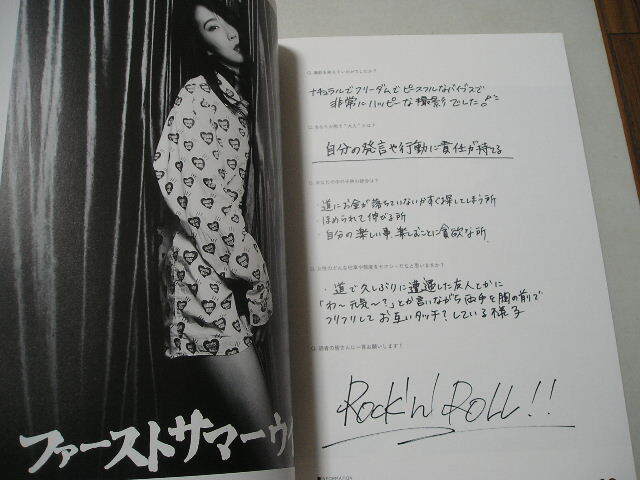 ファーストサマーウ
Q. 撮影を終えていかがでしたか?
ナチュラルでフリーダムでピースフルなバイブスで
非常にハッピーな撮影でした。
Q. あなたが思う"大人"とは?
自分の発言や行動に責任が持てる
Q. あなたの中の子供な部分は?
・道にお金が落ちていないかすぐ探してしまう所
・ほめられて伸びる所
・自分の楽しい事、楽しむことに貪欲な所
Q. 女性のどんな仕草や態度をセクシーだなと思いますか?
・道で久しぶりに遭遇した友人とかに
「わ〜元気〜?」とか言いながら両手を胸の前で
フリフリしてお互いタッチしている様子
Q. 読者の皆さんに一言お願いします!
Rock'n'Roll!!
INFORMATION